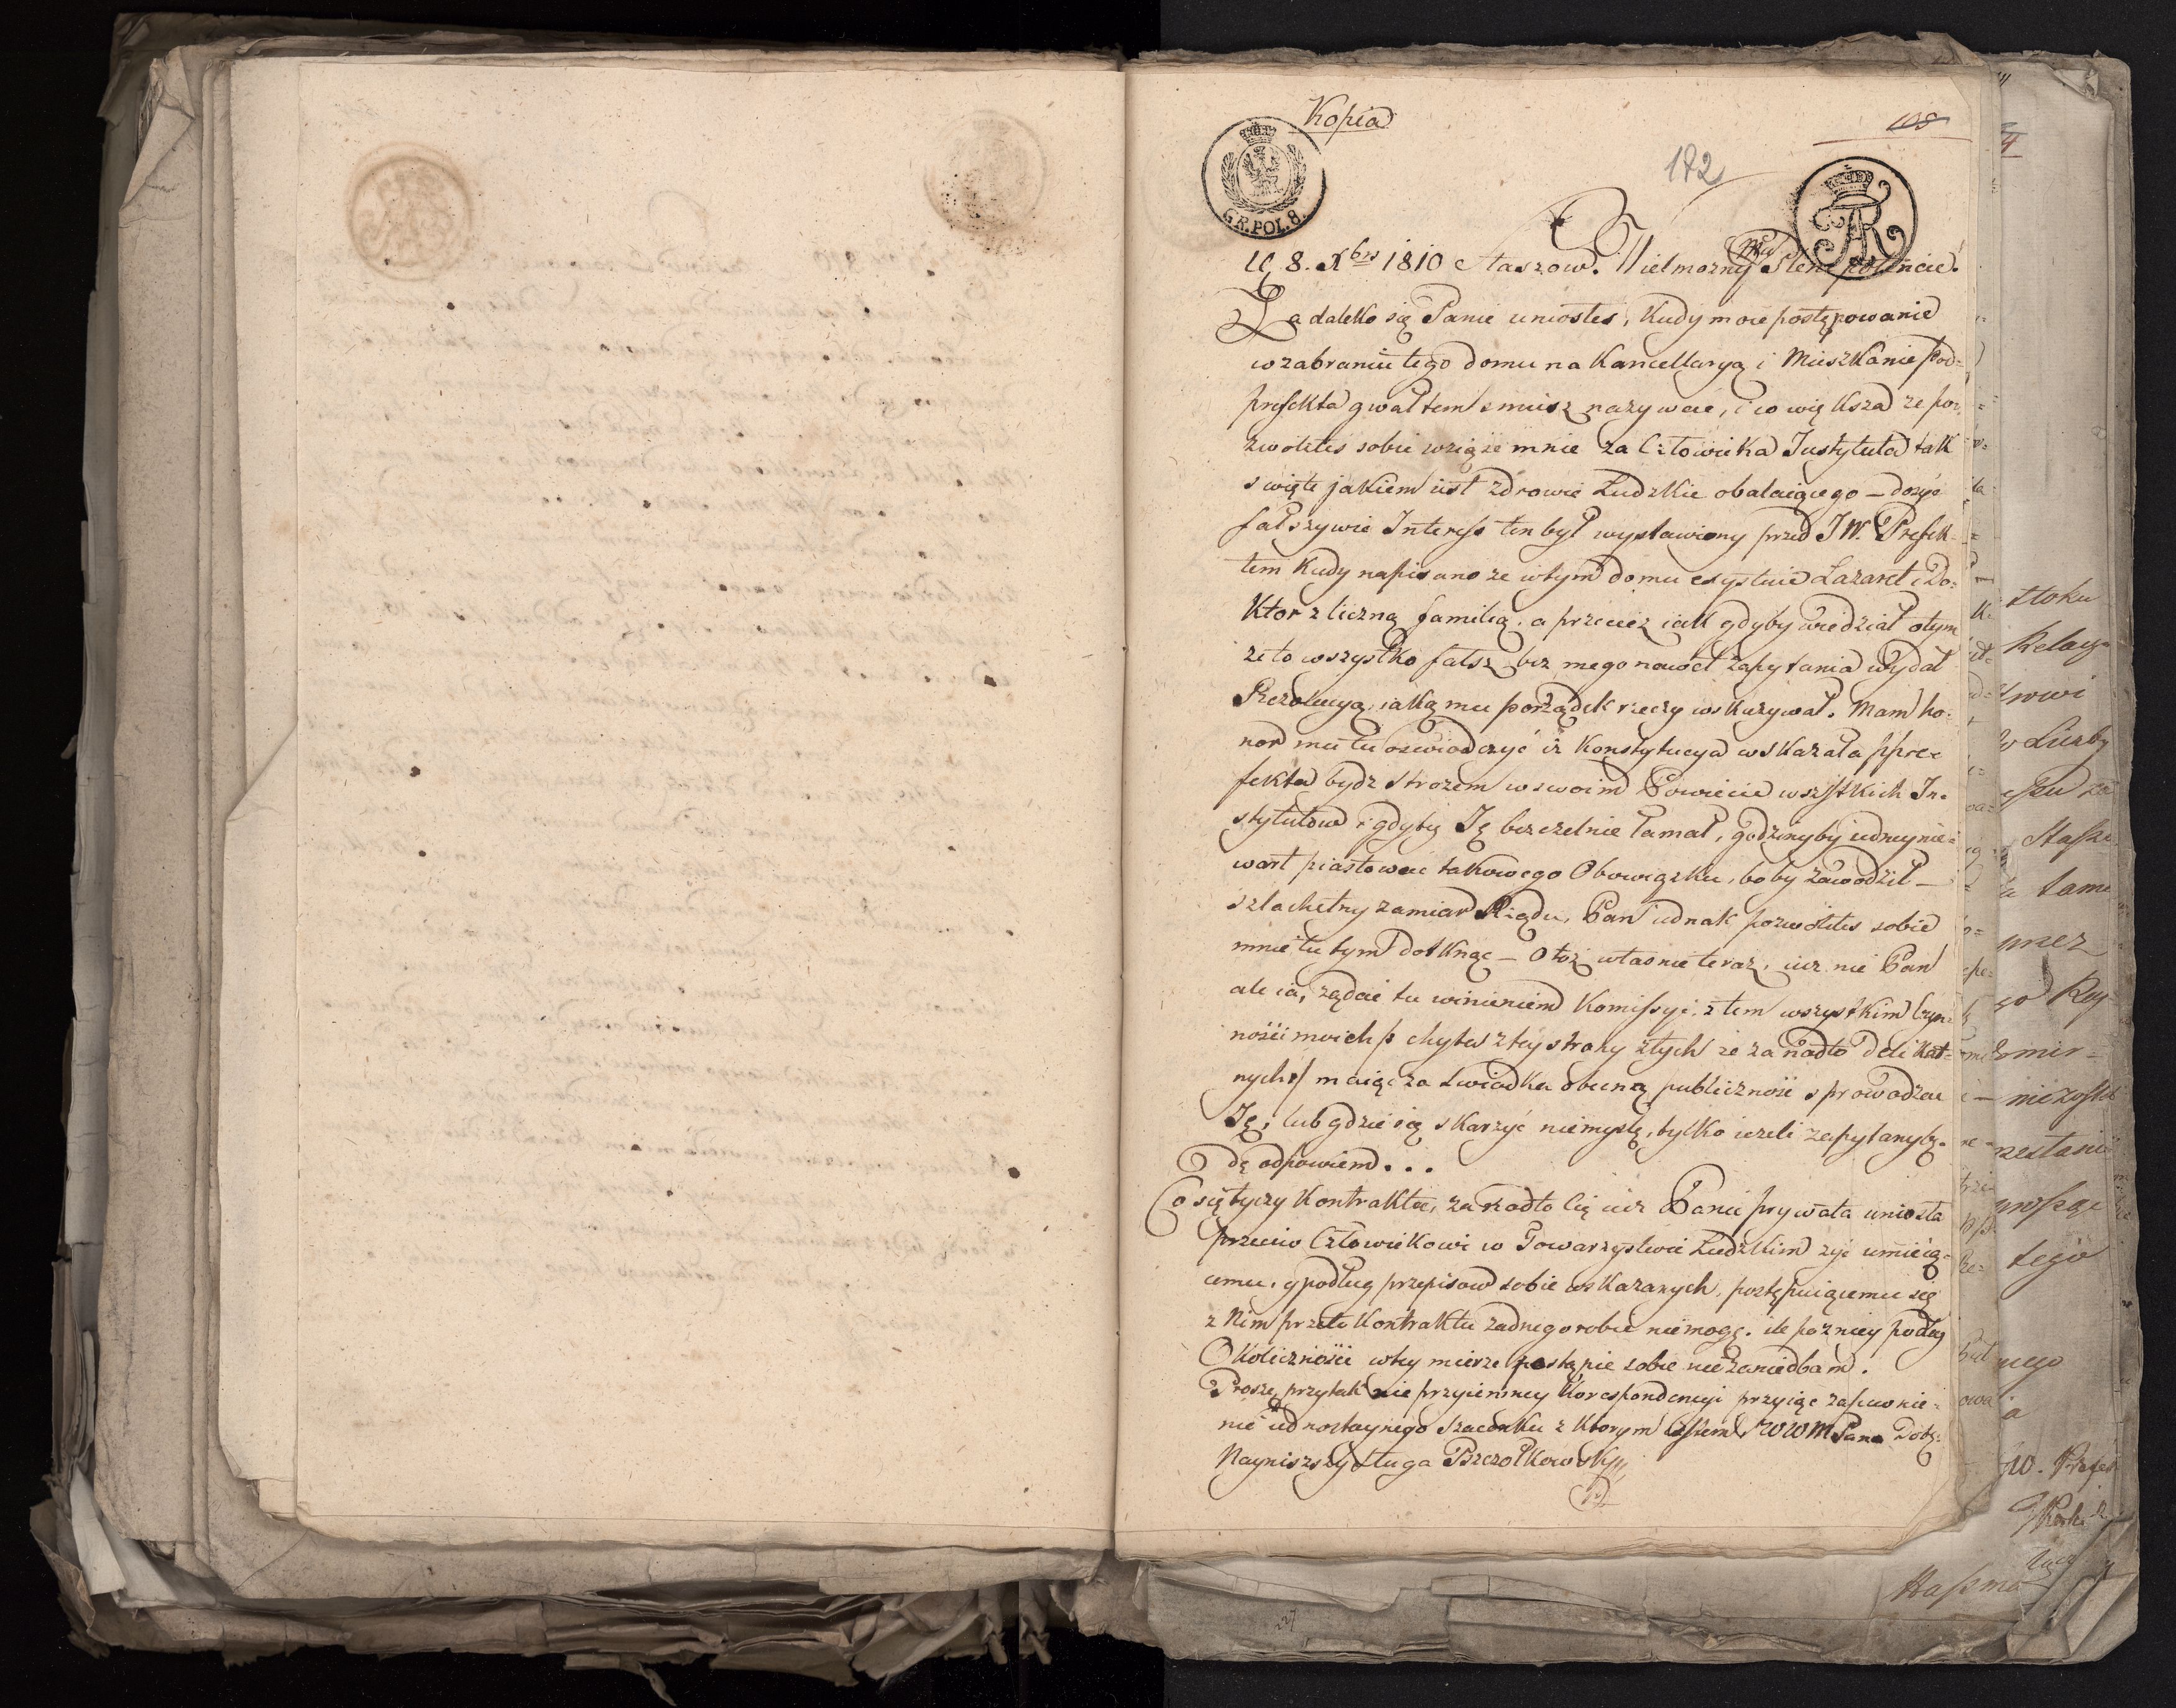 Kopia
108
172
GR. POL. 8.
AR
8. Xbrs 1810 Staszow. Wielmozny Mci Plenipotencie.
Za daleko się Panie uniosłes, kiedy moie postępowanie
w zabraniu tego domu na Kancellaryą i Mieszkanie Pod=
prefekta gwałtem smiesz nazywać, i co większa ze po=
zwoliłes sobie wziąść mnie za Człowieka Instytuta tak
swięte jakiem iest Zdrowie Ludzkie obalaiącego – dosyć
fałszywie Interess ten był wystawiony przed JW. Prefek=
tem kiedy napisano ze w tym domu exystuie Lazaret i Do=
ktor z liczną familią, a przeciez iak gdyby wiedział o tym
ze to wszystko fałsz, bez mego nawet zapytania wydał
Rezolucyą, iaką mu porządek rzeczy wskazywał. Mam ho=
nor mu tu oswiadczyć iz Konstytucya wskazała Ppre=
fekta bydz strozem w swoim Powiecie wszystkich In=
stytutow i gdyby Ię bezczelnie łamał, godzinyby iedney nie=
wart piastować takowego Obowiązku, bo by zawodził –
szlachetny zamiar Rządu, Pan iednak pozwoliłes sobie
mnie tu tym dotknąć – Otoz własnie teraz, iuz nie Pan
ale ia, ządać tu winienem Kommissyi, z tem wszystkim Czyn=
nosci moich /: chyba z tey strony złych ze za nadto delikat=
nych :/ maiąc za swiadka obecną publicznosć sprowadzać
Ię, lub gdzie się skarzyć niemyslę, tylko iezeli zapytany bę=
dę odpowiem . . .
Co się tyczy Kontraktu, za nadto Cię iuz Panie prywata uniosła
przeciw Człowiekowi w Towarzystwie Ludzkim zyć umieią=
cemu, y podług przepisow sobie wskazanych, postępuiącemu się
z Nim przeto Kontraktu zadnego robić niemogę. ile pozniey podług
Okolicznosci w tey mierze postąpić sobie nie zaniedbam.
Proszę przy tak nie przyiemney Korespondencyi przyiąć zapewnie=
nie iednostaynego szacunku z ktorym iestem WWM Pana Dobr.
Nayniszszy Sługa Pszczołkowski